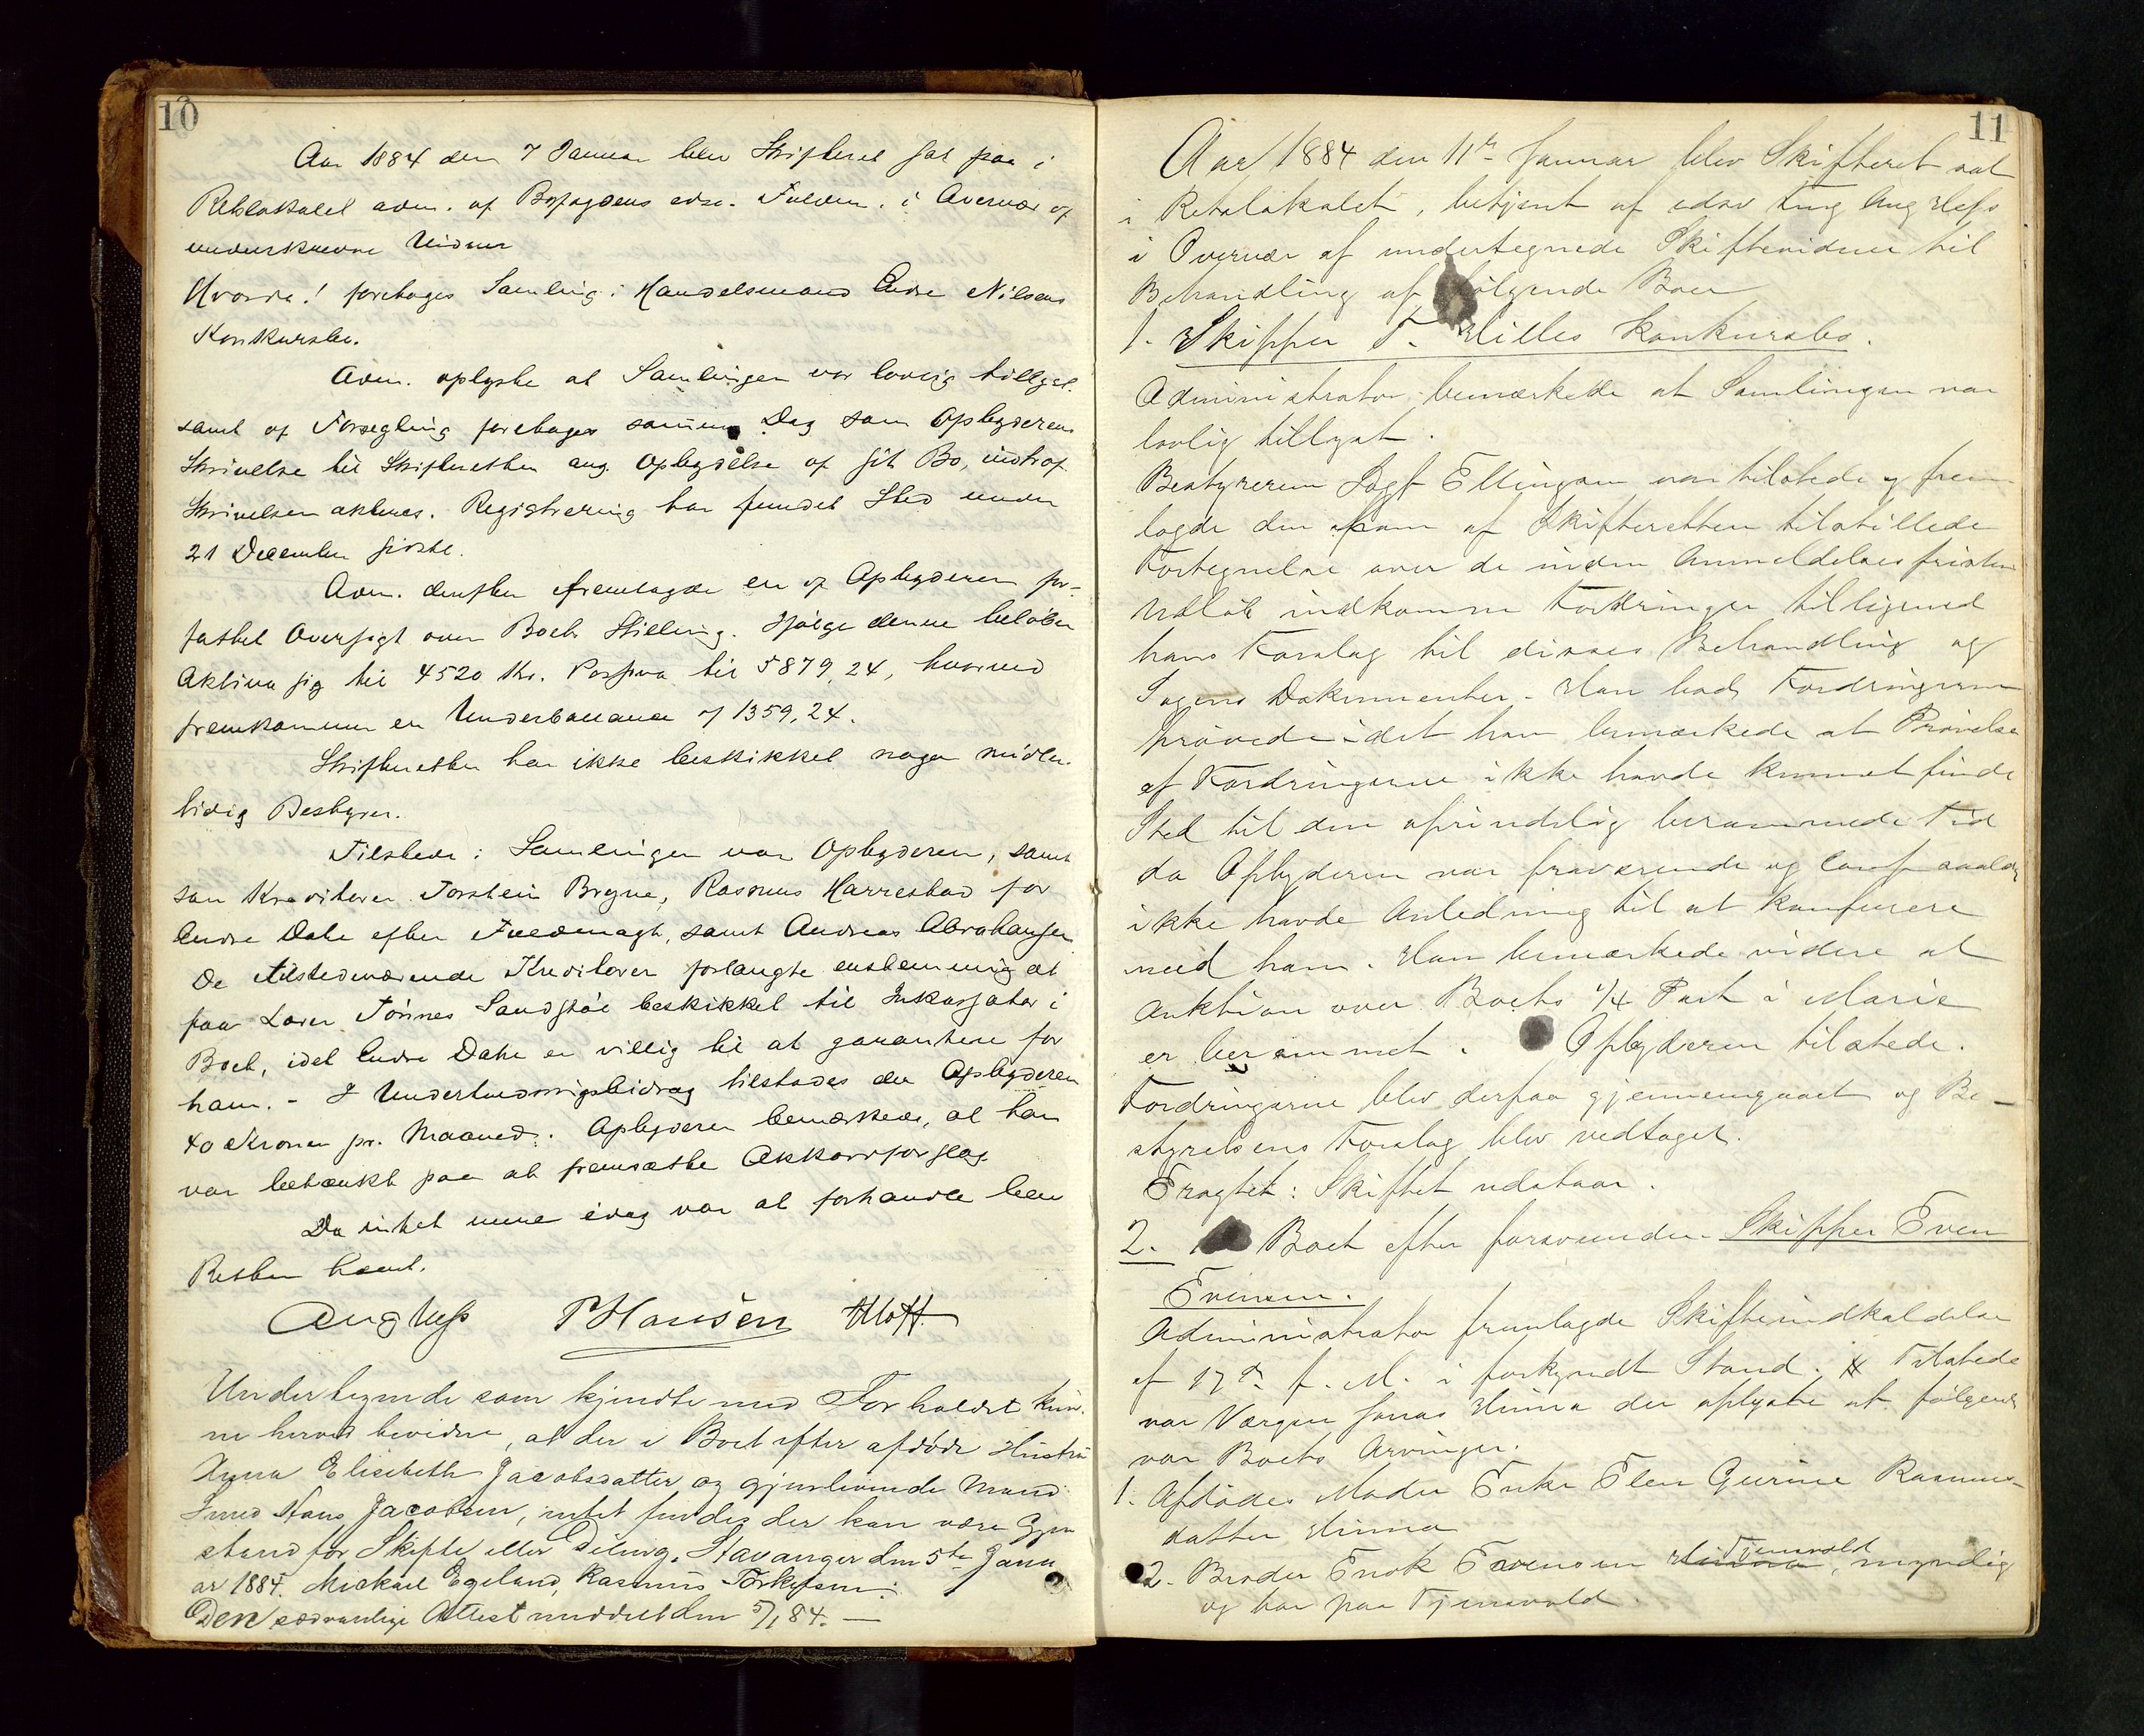 10
Aar 1884 den 7 Januar blev Skifteret sat paa i
Retslokalet adm. af Byfogdens edsv. Fuldm. i Overvær af
underskrevne Vidner
Hvorda! foretages Samling i Handelsmand Endre Nilsens
Konkursbo.
Adm. oplyste at Samlingen var lovlig tillyst
samt at Forsegling foretoges samme Dag som Opbyderens
Skrivelse til Skifteretten ang. Opbydelse af sit Bo, indtraf
Skrivelsen aktères. Registrering har fundet Sted under
21 December sidste.
Adm. derefter fremlagde en af Opbyderen for-
fattet Oversigt over Boets Stilling. Ifølge denne beløber
Aktiva sig til 4520 Kr. Passiva til 5879,24, hvorved
fremkommer en Underballance af 1359,24.
Skifteretten har ikke beskikket nogen midler-
tidig Bestyrer.
Tilstede i Samlingen var Opbyderen, samt
som Kreditorer Torstein Bryne, Rasmus Harrestad for
Endre Dahe efter Fuldmagt, samt Andreas Abrahamsen
De tilstedeværende Kreditorer forlangte enstemmig at
faa Lorer Tönnes Sandstöl beskikket til Inkassator i
Boet, idet Endre Dahe er villig til at garantere for
ham. - I Underholdningsbidrag tilstodes der Opbyderen
40 Kroner pr. Maaned. Opbyderen bemærkede, at han
var betænkt paa at fremsætte Akkordforslag.
Da intet mere idag var at forhandle blev
Retten hævet.
Aug Hess PHansen
Undertegnede som kjendte med Forholdet kun-
ne herved bevidne, at der i Boet efter afdøde Hustru
Anna Elisebeth Jacobsdatter og gjenlevende Mand
Smed Hans Jacobsen, intet findes der kan være Gjen
stand for Skifte eller Deling. Stavanger den 5te Janu
ar 1884. Mickael Egeland, Rasmus Torkelsen.
Den sædvanlige Attest meddelt den 5/1 84. —
11
Aar 1884 den 11te Januar blev Skifteret sat
i Retslokalet, betjent af edsv Fmg Aug Hess
i Overvær af undertegnede Skiftevidner til
Behandling af følgende Boer
1. Skipper T. Hilles Konkursbo.
Administrator bemærkede at Samlingen var
lovlig tillyst.
Bestyreren Sagf Ellingsen var tilstede og frem-
lagde den ham af Skifteretten tilstillede
Fortegnelse over de inden Anmeldelsesfristens
Udløb indkomne Fordringer tilligemed
hans Forslag til disses Behandling og
Sagens Dokumenter. Han bad Fordringerne
prøvede idet han bemærkede at Prøvelse
af Fordringerne ikke havde kunnet finde
Sted til den oprindelig berammede Tid
da Opbyderen var fraværende og Comp saaledes
ikke havde Anledning til at konferere
med ham. Han bemærkede videre at
Auktion over Boets 1/4 Part i Marie
er berammet. Opbyderen tilstede.
Fordringerne blev derpaa gjennemgaaet og Be-
styrelsens Forslag blev vedtaget.
Eragtet: Skiftet udstaar.
2. Boet efter forsvunden Skipper Even
Evensen.
Administrator fremlagde Skifteindkaldelse
af 17de f. M. i forkyndt Stand. Tilstede
var Værgen Jonas Hinna der oplyste at følgende
var Boets Arvinger.
1. Afdødes Moder Enke Elen Gurine Rasmus-
datter Hinna
2. Broder Enok Evensen Hinna Tjensvold, myndig
og bor paa Tjensvold.